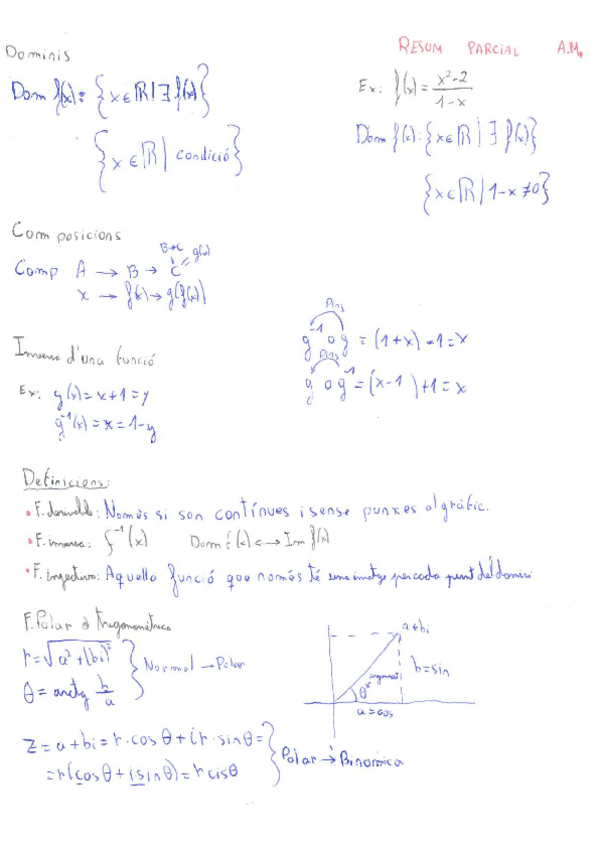 RESUM PARCIAL A.M.
Dominis
Dom f(x): {x∈ℝ | ∃ f(x)}
{x∈ℝ | condició}
Ex: f(x) = x²-2 / 1-x
Dom f(x): {x∈ℝ | ∃ f(x)}
{x∈ℝ | 1-x ≠ 0}
Composicions
B→C g(x)
Comp A → B → C
x → f(x) → g(f(x))
Inversa d'una funció
Ex: g(x) = x+1 = y
g⁻¹(x) = x = 1-y
dins
g⁻¹ o g = (1+x) - 1 = x
dins
g o g⁻¹ = (x-1) + 1 = x
Definicions:
• F. derivable: Només si son contínues i sense punxes al gràfic.
• F. inversa: f⁻¹(x) Dom f(x) ↔ Im f(x)
• F. injectiva: Aquella funció que només té una imatge per cada punt del domini
F. Polar o trigonomètrica
r = √a² + (bi)²
θ = arctg b/a
Normal → Polar
a+bi
b = sin
argument
θ
a = cos
z = a+bi = r·cosθ + i r·sinθ =
= r(cosθ + i sinθ) = r cisθ
Polar → Binòmica